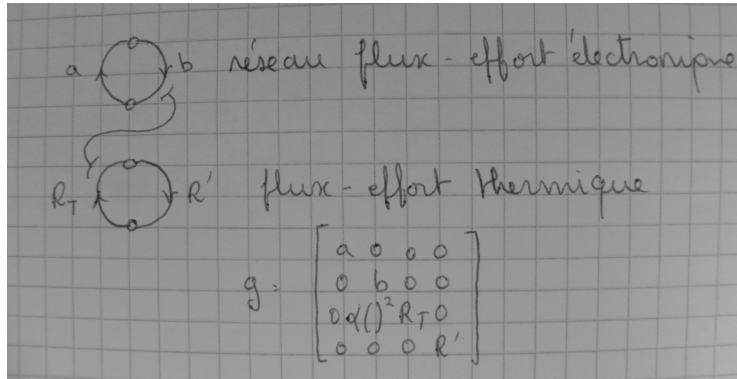 a b réseau flux-effort électronique
R_T R' flux-effort thermique
g = [ a 0 0 0
0 b 0 0
0 α()² R_T 0
0 0 0 R' ]